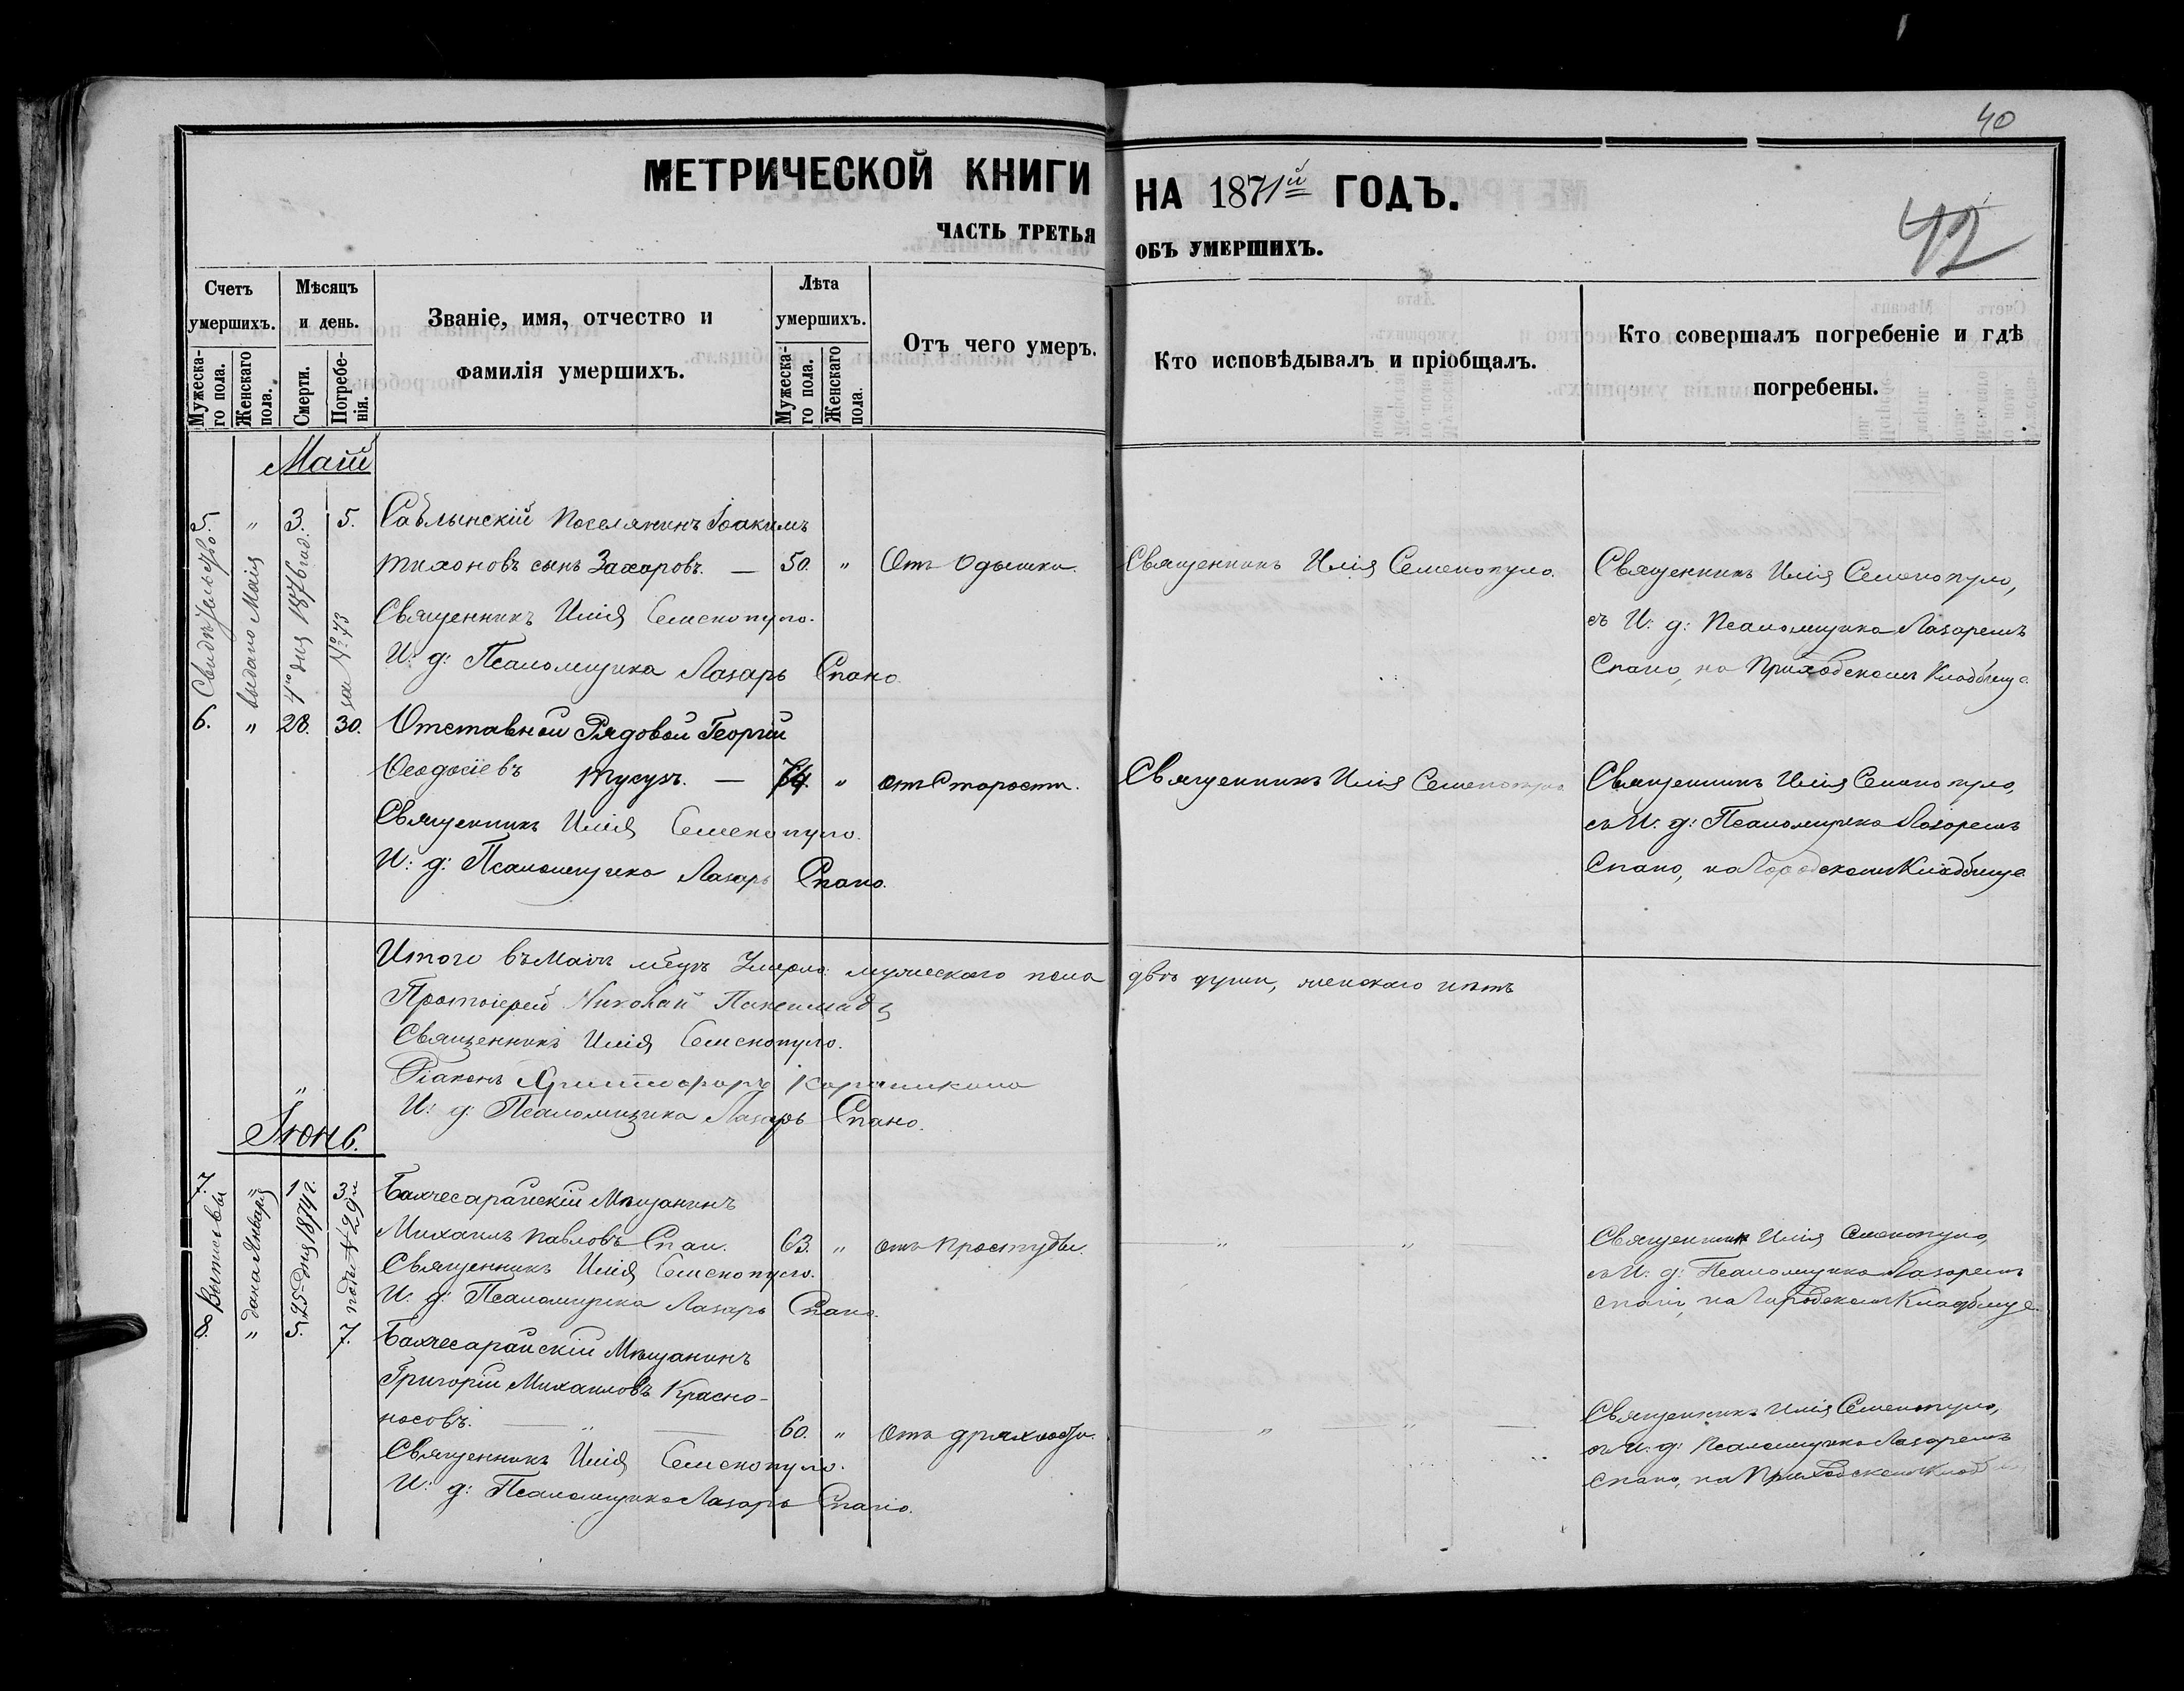 40
42
МЕТРИЧЕСКОЙ КНИГИ НА 1871й ГОДЪ.
ЧАСТЬ ТРЕТЬЯ ОБЪ УМЕРШИХЪ.
Счетъ умершихъ.
Мужескаго пола.
Женскаго пола.
Мѣсяцъ и день.
Смерти.
Погребенія.
Званіе, имя, отчество и
фамилія умершихъ.
Лѣта умершихъ.
Мужескаго пола.
Женскаго пола.
Отъ чего умеръ.
Кто исповѣдывалъ и пріобщалъ.
Кто совершалъ погребеніе и гдѣ
погребены.
Маій
5. " 3. 5. Саблынскій Поселянинъ Іоакимъ
Тихоновъ сынъ Захаровъ. — 50. " Отъ Одышки. Священникъ Илія Семенопуло. Священникъ Илія Семенопуло,
Священникъ Илія Семенопуло. съ И: д: Псаломщика Лазаремъ
И: д: Псаломщика Лазарь Спано. Спано, на Приходскомъ Кладбище
Свидѣтельство
выдано Маія
4го дня 1876 год.
за №о 43
6. " 28. 30. Отставной Рядовой Георгій
Ѳеодосіевъ Тусузъ. — 74. " отъ Старости. Священникъ Илія Семенопуло Священникъ Илія Семенопуло,
Священникъ Илія Семенопуло. съ И: д: Псаломщика Лазаремъ
И: д: Псаломщика Лазарь Спано. Спано, на Городскомъ Кладбище
Итого въ Маіѣ мѣцѣ Умерло: мужескаго пола двѣ души, женскаго нѣтъ
Протоіерей Николай
Священникъ Илія Семенопуло.
Діаконъ Христофоръ
И: д: Псаломщика Лазарь Спано.
Іюнь.
7. " 1 3. Бахчесарайскій Мѣщанинъ
Михаилъ Павловъ Спаи. 63. " отъ Простуды. " " Священникъ Илія Семенопуло,
Священникъ Илія Семенопуло. съ И: д: Псаломщика Лазаремъ
И: д: Псаломщика Лазарь Спано. Спано, на Городскомъ Кладбище
Выпись вы
дана Января
25 дня 1874 г.
подъ № 29м
8. " 5. 7. Бахчесарайскій Мѣщанинъ
Григорій Михаиловъ Красно-
носовъ. — " — 60. " Отъ дряхлости. " " Священникъ Илія Семенопуло,
Священникъ Илія Семенопуло. съ И: д: Псаломщика Лазаремъ
И: д: Псаломщика Лазарь Спано. Спано, на Приходскомъ